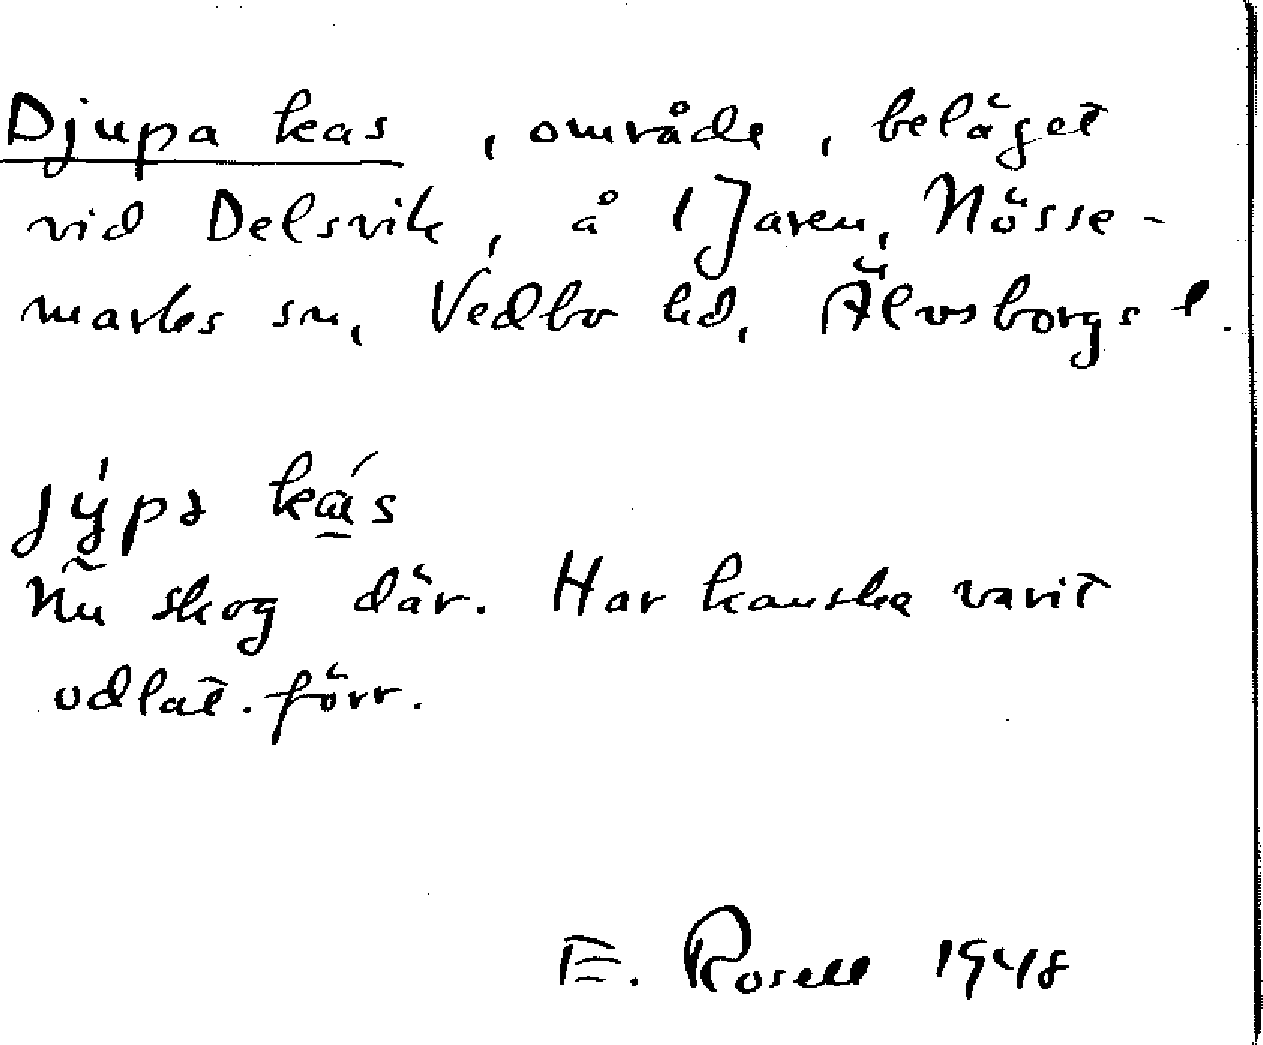 Djupa kas, område, beläget
vid Delsvik, å 1 Jaren, Nösse-
marks sn, Vedbo hd, Älvsborgs l.
kás
Nu skog där. Har kanske varit
odlat. förr.
E. Rosell 1948